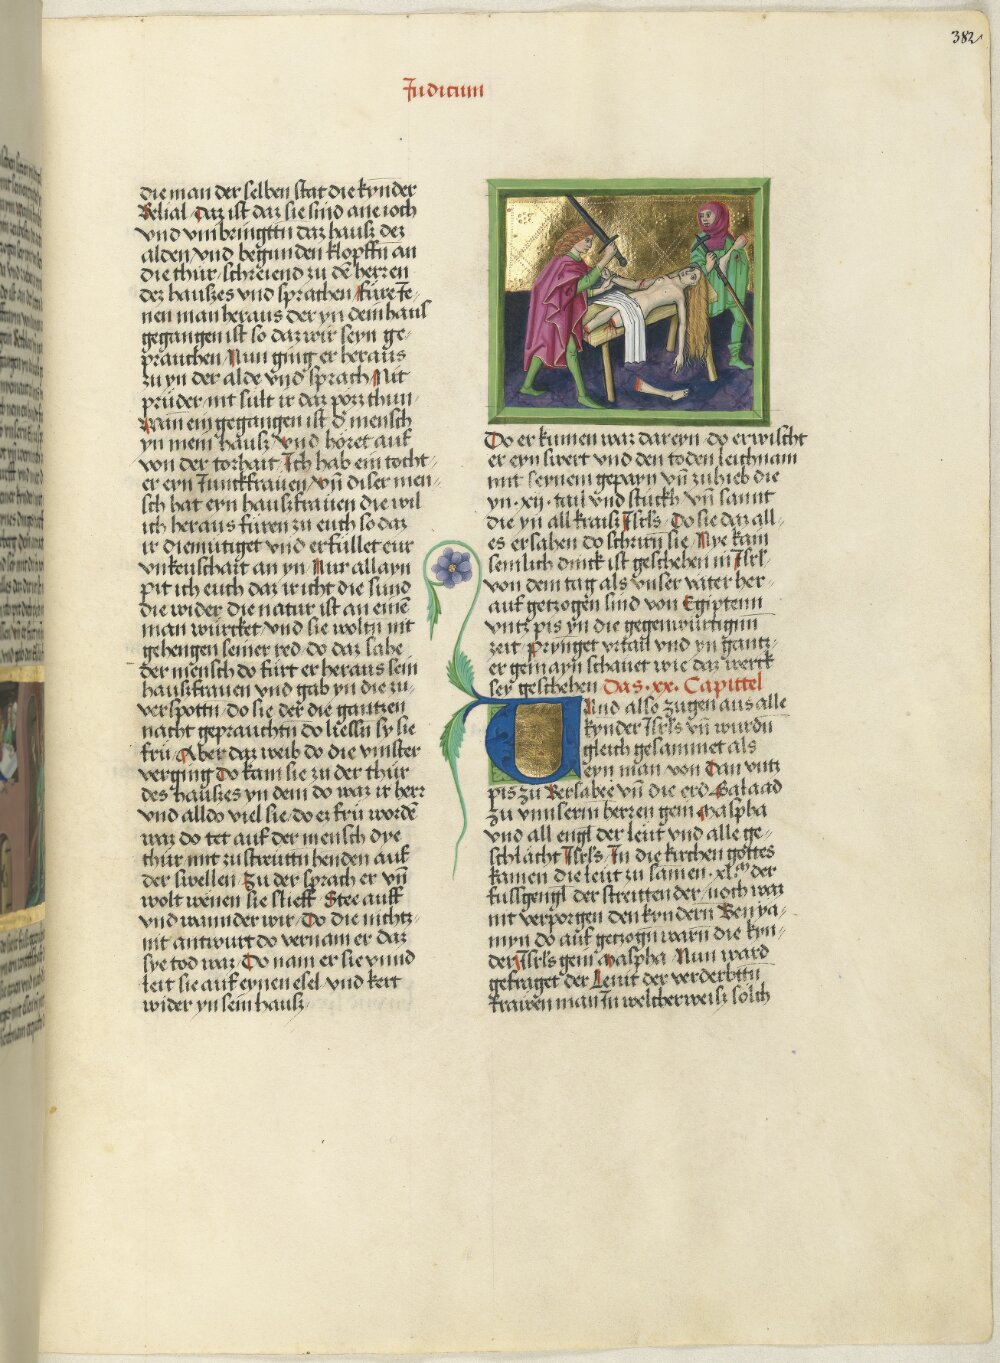 382
Judicum
die man der selben stat die kynder
Belial Daz ist daz sie sind ane ioch
vnd vmbringttn daz hausz dez
alden vnd begunden klopffn an
die thür schreiend zu dē herren
dez hauszes vnd sprachen füre Je-
nen man heraus der yn dein haus
gegangen ist so daz wir seyn ge-
prauchen Nun ging er heraus
zu yn der alde vnd sprach Nit
prüder nit sult ir daz pozz thun
Wan ein gegangen ist d mensch
yn mein hausz vnd höret auf
von der torhait Ich hab ein tocht-
er eyn Junckfrauen vn̄ diser men-
sch hat eyn hauszfrauen die wil
ich heraus füren zu euch so daz
ir diemütiget vnd erfüllet eur
vnkeuschait an yn Nur allayn
pit ich euch daz ir icht die sund
die wider die natur ist an einē
man würcket vnd sie woltn nit
gehengen seiner red do daz sahe
der mensch do fürt er heraus sein
hauszfrauen vnd gab yn die zu
verspottn do sie der die gantzen
nacht geprauchtn do liessn sy sie
frü Aber daz weib do die vinster
verging Do kam sie zu der thür
des hauszes yn dem do waz ir herr
vnd alldo viel sie do ez frü wordē
waz do tet auf der mensch dye
thür mit zustreuttn henden auf
der swellen Zu der sprach er vn̄
wolt wenen sie slieff Stee auff
vnd wannder wir Do die nichtz
nit antwurt do vernam er daz
sye tod waz Do nam er sie vnnd
leit sie auf eynen esel vnd kert
wider yn sein hausz
Do er kumen waz dareyn do erwischt
er eyn swert vnd den toden leichnam
mit seynem gepayn vn̄ zuhieb die
yn xij tail vnd stuckh vn̄ sannt
die yn all kraisz Isrls Do sie daz all-
es ersahen do schrirn sie Nye kain
semlich dinck ist geschehen in Isrl
von dem tag als vnser väter her-
auf getzogen sind von Egiptenn
vntz pis yn die gegenwürtignn
zeit Prynget vrtail vnd yn gantz-
er gemayn schauet wie daz werck
sey geschehen Das xx Capittel
Und also zugen aus alle
kynder Isrls vn̄ wurdn
gleich gesammet als
eyn man von Dan vntz
pis zu Bersabee vn̄ die erd Galaad
zu vnnserm herren gem Maspha
vnd all engl der leut vnd alle ge-
schlächt Isrls In die kirchen gottes
kamen die leut zu samen xl m der
fussgengl der streittender noch waz
nit verporgen den kyndern Benya-
myn do auf getzogn warn die kyn-
der Isrls gem Maspha Nun ward
gefraget der Leuit der verderbttn
frawen man In welcher weisz sölch